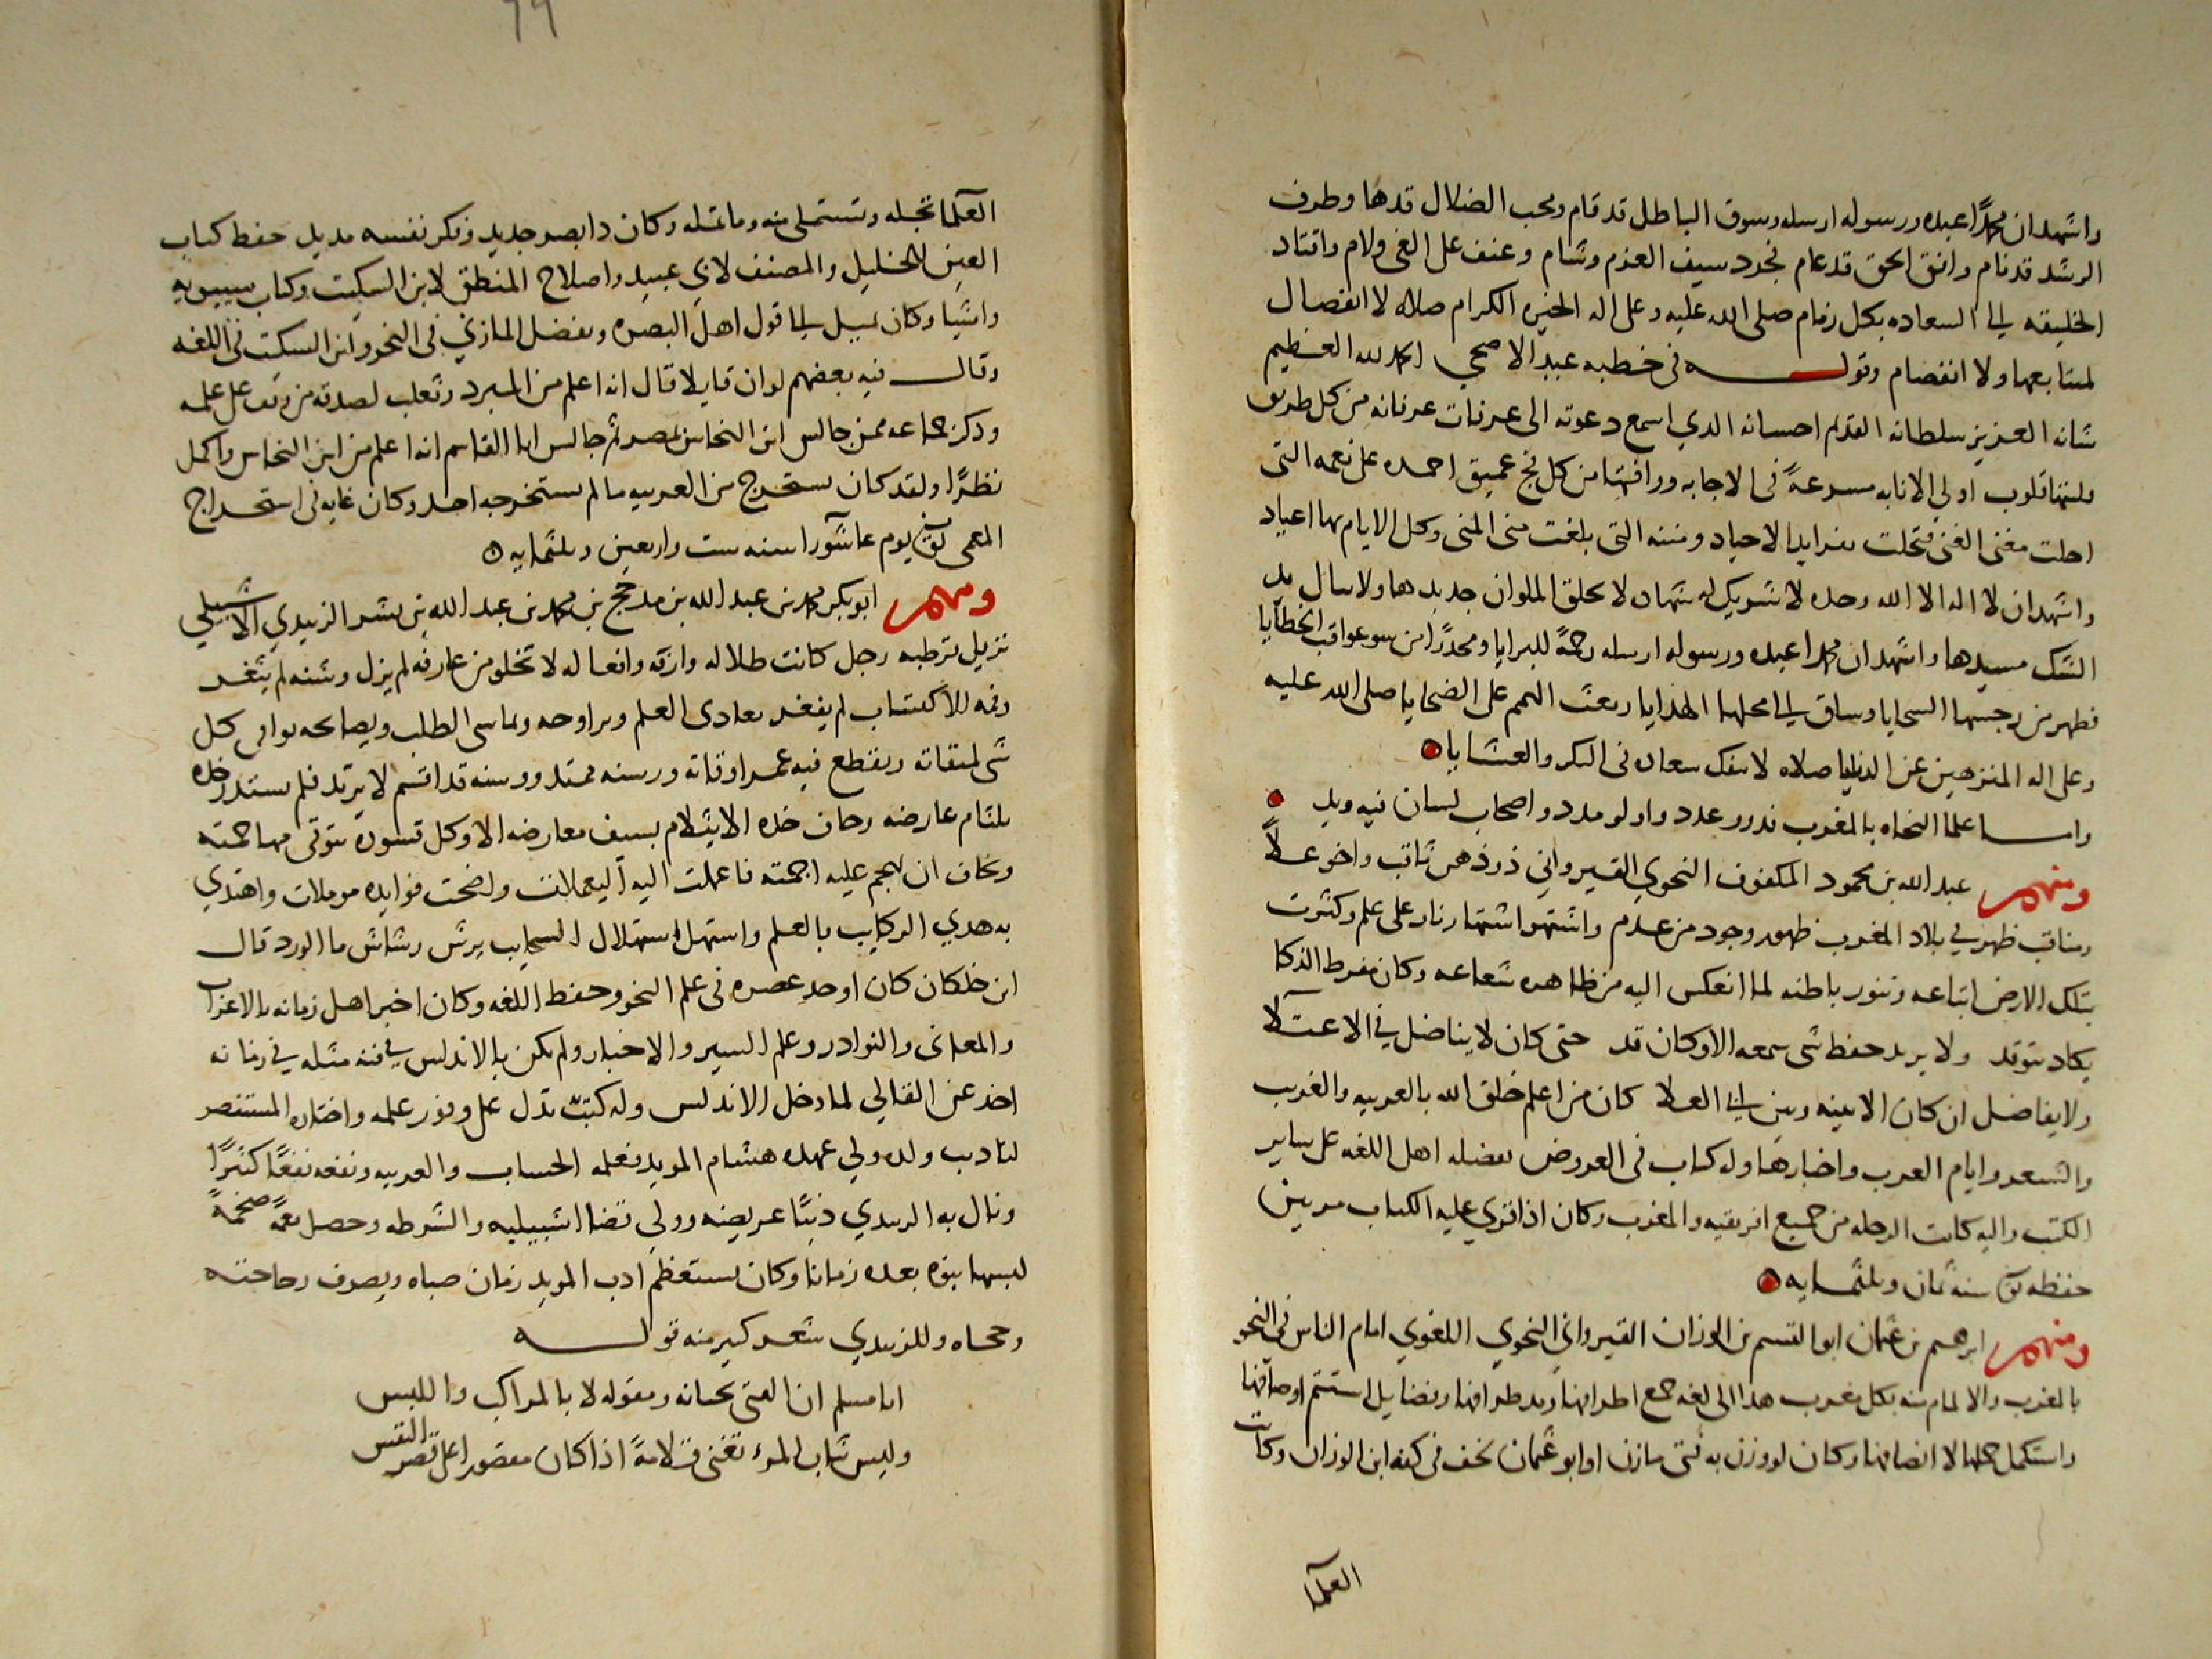 واشهد ان محمدًا عبده ورسوله ارسله وسوق الباطل قد قام ومحب الضلال قدها وطرف
الرشد قد نام وافق الحق قد عام فجرد سيف العزم وشام وعنف على الغي ولام واقتاد
الخليقه الى السعاده بكل زمام صلى الله عليه وعلى اله الخيره الكرام صلاه لا انفصال
لمتابعها ولا انفصام وقولـــه في خطبه عيد الاضحى الحمد لله العظيم
شانه العزيز سلطانه القديم احسانه الدي اسمع دعوته الى عرفات عرفانه من كل طريق
فلبتها قلوب اولي الانابه مسرعةً في الاجابه ووافتها من كل فج عميق احمده على نعمه التي
احلت مغنى الغنى فتحلت بفرايدا الاجياد ومننه التي بلغت منى المنى وكل الايام بها اعياد
واشهد ان لا اله الا الله وحده لا شريك له شهاده لا يخلق الملوان جديدها ولا ينال يد
الشك مسيدها واشهد ان محمدا عبده ورسوله ارسله رحمةً للبرايا ومحذرًا من سو عواقب الخطايا
فطهر من رجسها السجايا وساق الى محلها الهدايا وبعث الهمم على الضحايا صلى الله عليه
وعلى اله المنزهين عن الدنايا صلاه لا تنفك تعاد في البكر والعشايا
وامـــا علما النحاه بالمغرب فذوو عدد واولو مدد واصحاب لسان فيه ويد
ومنهم عبد الله بن محمود المكفوف النحوي القيرواني ذو ذهن ثاقب واخو علاً
ومناقب ظهر في بلاد المغرب ظهور وجود من عدم واشتهر اشتهار نار على علم وكثرت
بتلك الارض اتباعه وتنور باطنه لما انعكس اليه من ظاهره شعاعه وكان مفرط الذكا
يكاد يتوقد ولا يريد حفظ شي سمعه الا وكان قد حتى كان لا يناضل في الاعتلا
ولا يفاضل ان كان الا بينه وبين ابي العلا كان من اعلم خلق الله بالعربيه والغريب
والشعر وايام العرب واخبارها وله كتاب في العروض يفضله اهل اللغه على ساير
الكتب واليه كانت الرحله من جميع افريقيه والمغرب وكان اذا قري عليه الكتاب مرتين
حفظه توفي سنة ثمان وثلثمايه
ومنهم ابرهيم بن عثمان ابو القسم بن الوزان القيرواني النحوي اللغوي امام الناس في النحو
بالمغرب والالمام منه بكل مغرب هذا الى لغه جمع اطرافها ومد طرافها وفضايل استتم اوصافها
واستكمل جملها الا انصافها وكان لو وزن به فتى مازن او ابو عثمان لخف في كفه ابن الوزان وكانت
العلما
العلما تجله وتستملي منه وما تمله وكان ذا بصر حديد وفكر نفسه مديد حفظ كتاب
العين للخليل والمصنف لابي عبيد واصلاح المنطق لابن السكيت وكتاب سيبويه
واشيا وكان يميل الى قول اهل البصره ويفضل المازني في النحو وابن السكيت في اللغه
وقالـــ فيه بعضهم لو ان قايلا قال انه اعلم من المبرد وثعلب لصدقه من وقف على علمه
وذكر جماعه ممن جالس ابن النحاس بمصر ثم جالس ابا القاسم انه اعلم من ابن النحاس واكمل
نظرًا ولقد كان يستخرج من العربيه ما لم يستخرجه احد وكان غايه في استخراج
المعمى توفي يوم عاشورا سنه ست واربعين وثلثمايه
ومنهم ابو بكر محمد بن عبد الله بن مدحج بن محمد بن عبد الله بن بشر الزبيدي الاشبيلي
نزيل قرطبه رجل كانت ظلاله وارقه وافعاله لا تخلو من عارفه لم يزل وسنه لم يثغر
وفمه للاكتساب لم يفغر يغادى العلم ويراوحه ويماسى الطلب ويصابحه يوافي كل
شي لميقاته ويقطع فيه عمر اوقاته ورسنه ممتد ووسنه قد اقسم لا يرتد فلم يستدر خده
بلثام عارضه وحاف خده الا يثلام بسيف معارضه الا وكل قسوره يتوقى مهاجمته
ويخاف ان يهجم عليه اجمته فاعملت اليه اليعملات واضحت فوايده موملات واهتدي
به هدي الركايب بالعلم واستهل استهلال السحايب يرش رشاش ما الورد قال
ابن خلكان كان اوحد عصره في علم النحو وحفظ اللغه وكان اخبر اهل زمانه بالاعراب
والمعانى والنوادر وعلم السير والاخبار ولم يكن بالاندلس في فنه مثله في زمانه
اخذ عن القالي لما دخل الاندلس وله كتب تدل على وفور علمه واختاره المستنصر
لتاديب ولده ولي عهده هشام المويد فعلمه الحساب والعربيه ونفعه نفعًا كثيرًا
ونال به الزبيدي دنيًا عريضه وولي قضا اشبيليه والشرطه وحصل نعمةً ضخمةً
لبسها بنوه بعده زمانا وكان يستعظم ادب المويد زمان صباه ويصف رجاحته
وحجاه وللزبيدي شعر كبير منه قولـــه
ابا مسلم ان الفتى بجنانه ومقوله لا بالمراكب واللبس
وليس ثياب المرء تغنى قلامةً اذا كان مقصورا على قصر النفس